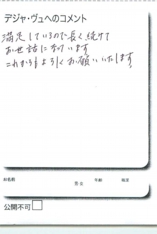 デジャ・ヴュへのコメント
満足しているので長く続けて
お世話になります
これからもよろしくお願いいたします。
お名前
男・女
年齢
職業
公開不可